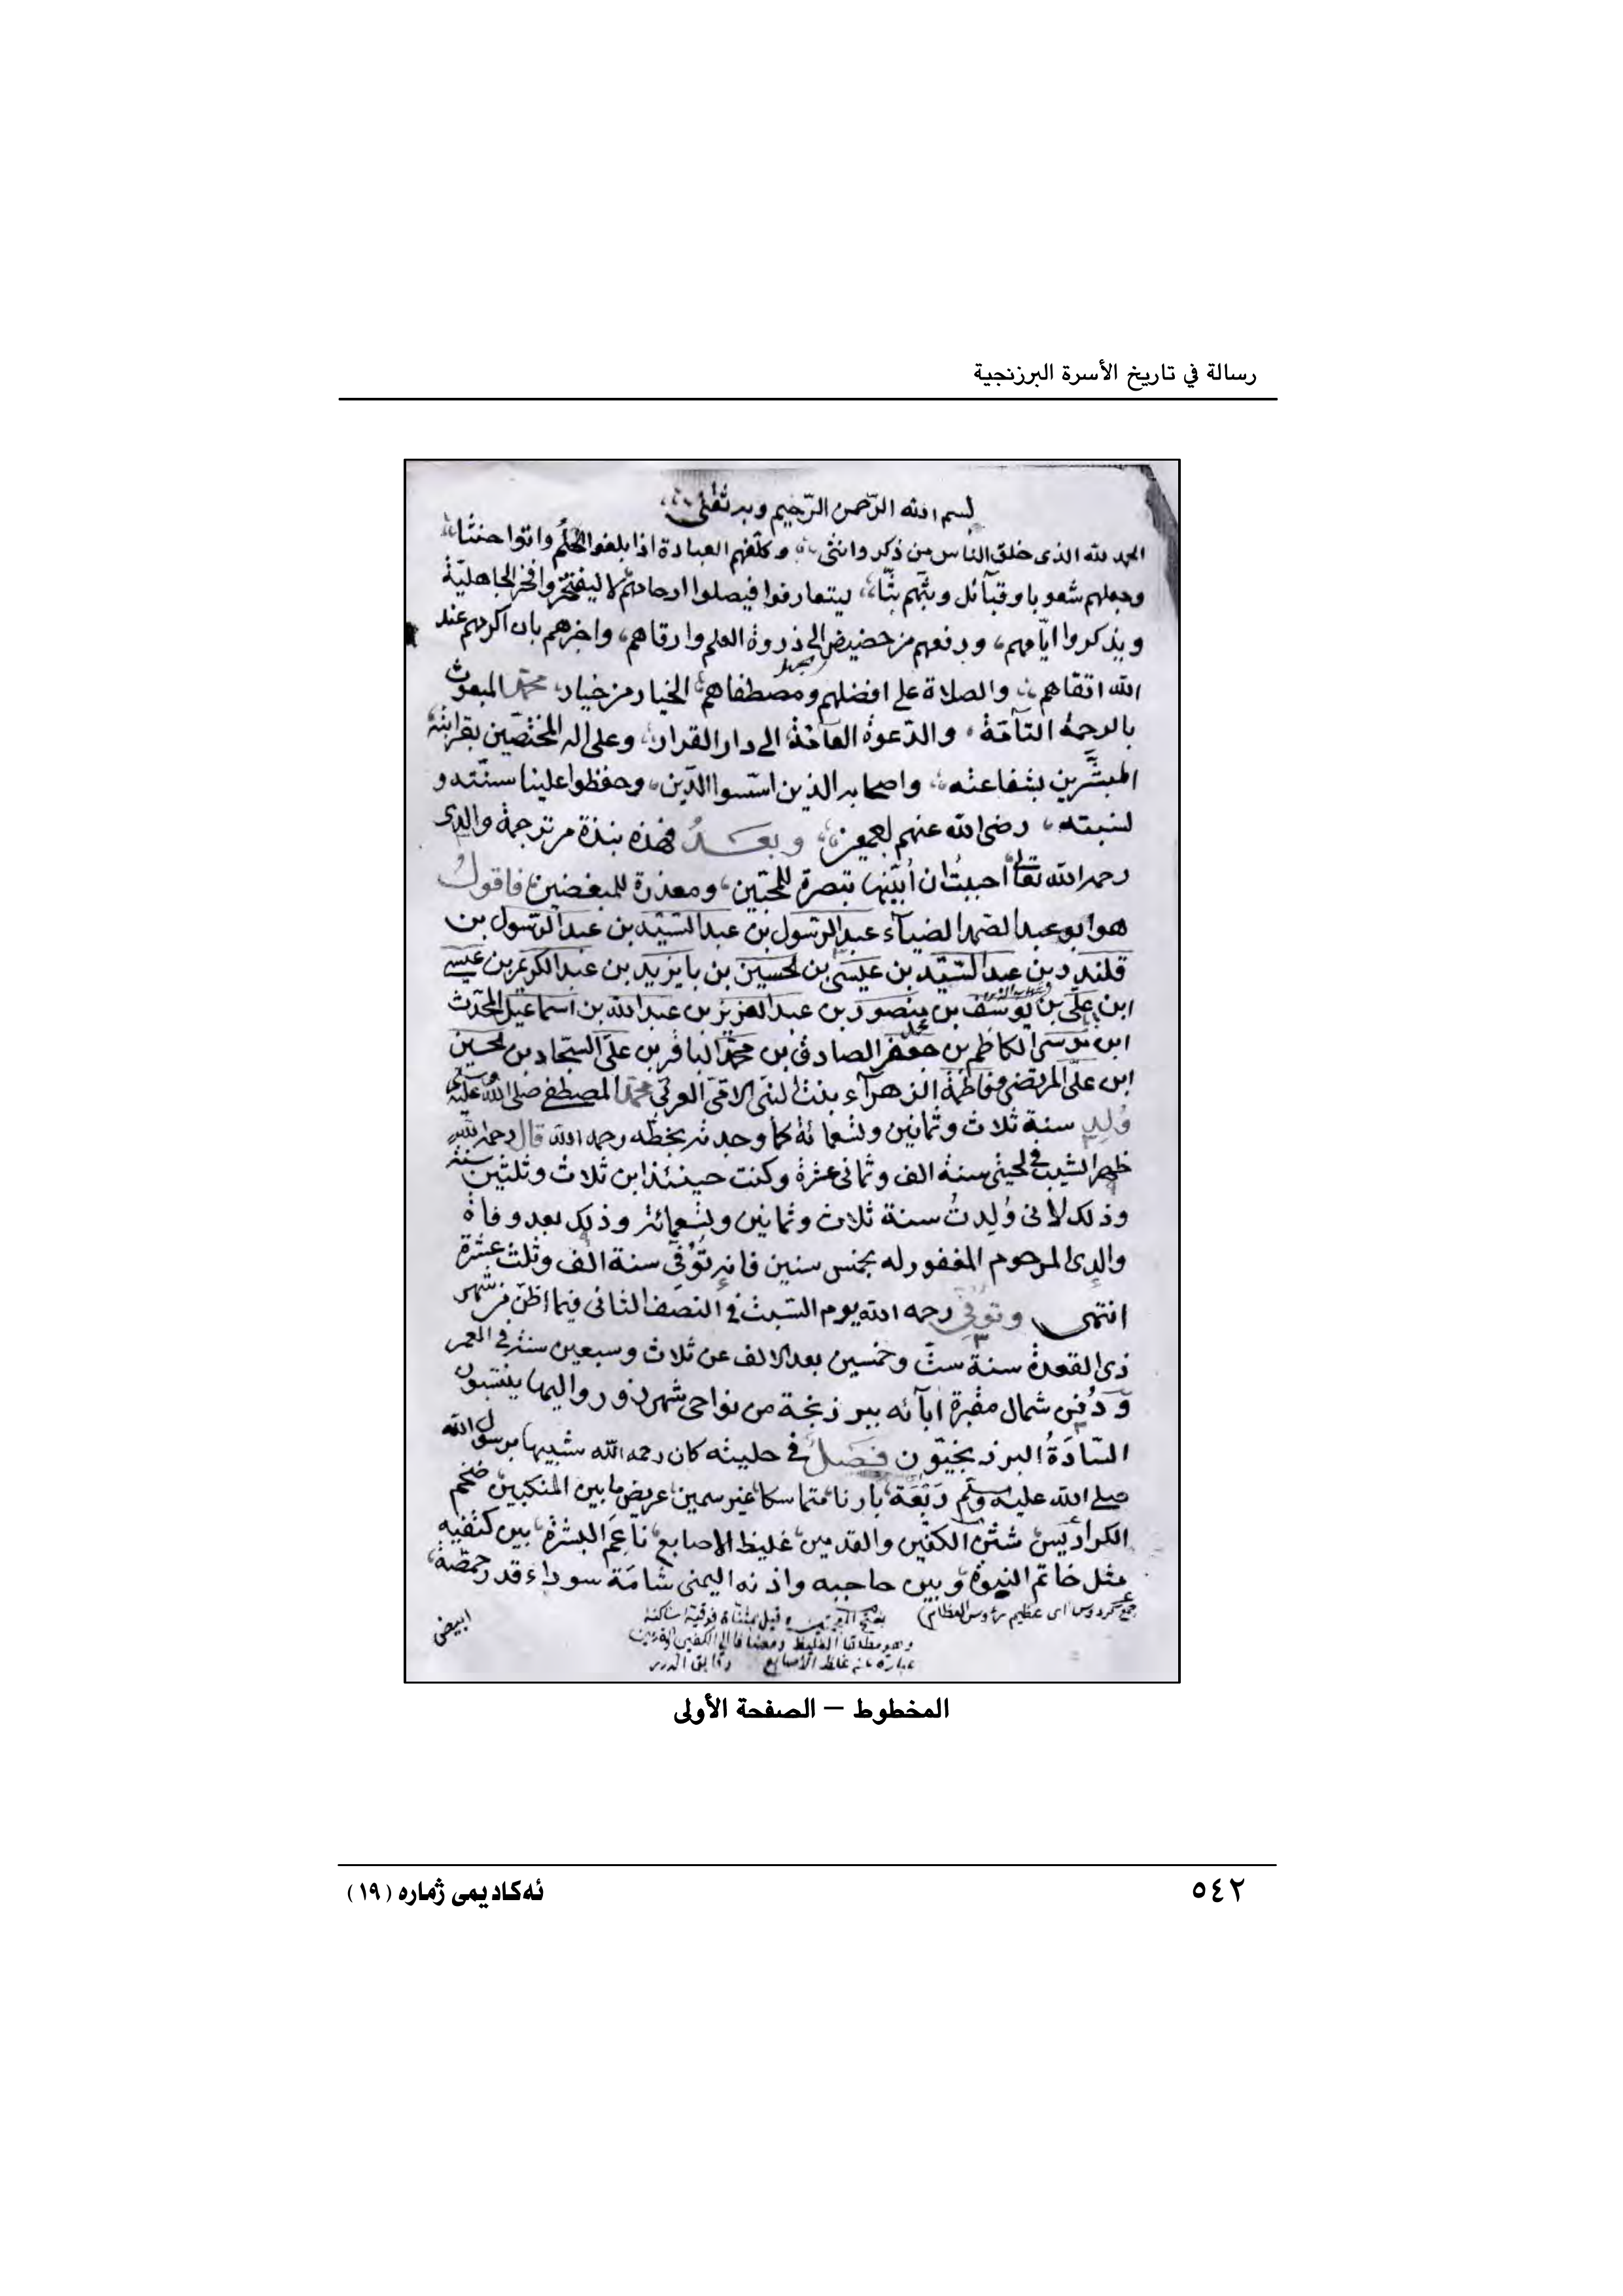 رسالة في تاريخ الأسرة البرزنجية
بسم الله الرّحمن الرّحيم وبه ثقتي
الحمد لله الذى خلق النّاس من ذكر وانثى وكلّفهم العبادة اذا بلغوا الحُلُم واتوا حنثا
وجعلهم شعوبا وقبآئل وبثّهم بثّا ليتعارفوا فيصلوا ارحامهم لا ليفتخروا فخر الجاهليّة
ويذكروا ايّامهم، ورفعهم من حضيض الى ذروة العلم وارقاهم، واخبرهم بان اكرمهم عند
الجهل
الله اتقاهم والصلاة على افضلهم ومصطفاهم الخيار من خيار، محمّد المبعوث
بالرحمة التآمّة، والدّعوة العآمّة الى دار القرار، وعلى اله المختصّين بقرابته
المبشّرين بشفاعته، واصحابه الذين اسّسوا الدّين، وحفظوا علينا سنّته و
نسبته، رضى الله عنهم اجمعين، وبعدُ فهذه نبذة من ترجمة والدى
رحمه الله تعالى احببتُ ان أبيّنها تبصرة للمحبّين، ومعذرة للمبغضين، فاقولُ
هو ابو عبد الصمد الضيآء عبد الرّسول بن عبد السّيّد بن عبد الرّسول بن
قلندر بن عبد السّيّد بن عيسى بن حسين بن بايزيد بن عبد الكريم بن عيسى
ابن علىّ بن يوسف بن منصور بن عبد العزيز بن عبد الله بن اسماعيل المحدّث
ابن موسى الكاظم بن جعفر الصادق بن محمّد الباقر بن علىّ السّجّاد بن الحسين
ابن علىّ المرتضى وفاطمة الزهرآء بنت النبىّ الامّىّ العربىّ محمّد المصطفى صلى الله عليه وسلم
وُلِدَ سنة ثلاث وثمانين وتسعمائة كما وجدته بخطّه رحمه الله قال رحمه الله
ظهر الشيب فى لحيتى سنة الف وثمانى عشرة وكنت حينئذ ابن ثلاث وثلثين سنة
وذلك لانى وُلِدتُ سنة ثلاث وثمانين وتسعمائة وذلك بعد وفاة
والدِى المرحوم المغفور له بخمس سنين فانه تُوُفّى سنة الف وثلث عشرة
انتهى وتُوُفّى رحمه الله يوم السّبت فى النصف الثانى فيما اظنّ من شهر
ذى القعدة سنة ستّ وخمسين بعد الالف عن ثلاث وسبعين سنة فى العمر
ودُفِن شمال مقبرة ابآئه ببرزنجة من نواحى شهرزور واليها ينتسبون
السّادَةُ البرزنجيّون فصل فى حليته كان رحمه الله شبيها برسول الله
صلى الله عليه وسلّم رَبْعَة بادنا متماسكا غير سمين عريض ما بين المنكبين ضخم
الكراديس شثن الكفّين والقدمين غليظ الاصابع ناعم البشرة بين كتفيه
مثل خاتم النبوة وبين حاجبه واذنه اليمنى شامَة سوداء قدر حمّصة
جمع كردوس اى عظيم رؤوس العظام
وقيل بمثناة فوقية ساكنة
عبارة عن غلظ الاصابع
ابيض
المخطوط – الصفحة الأولى
٥٤٢
ئەکادیمی ژمارە (١٩)